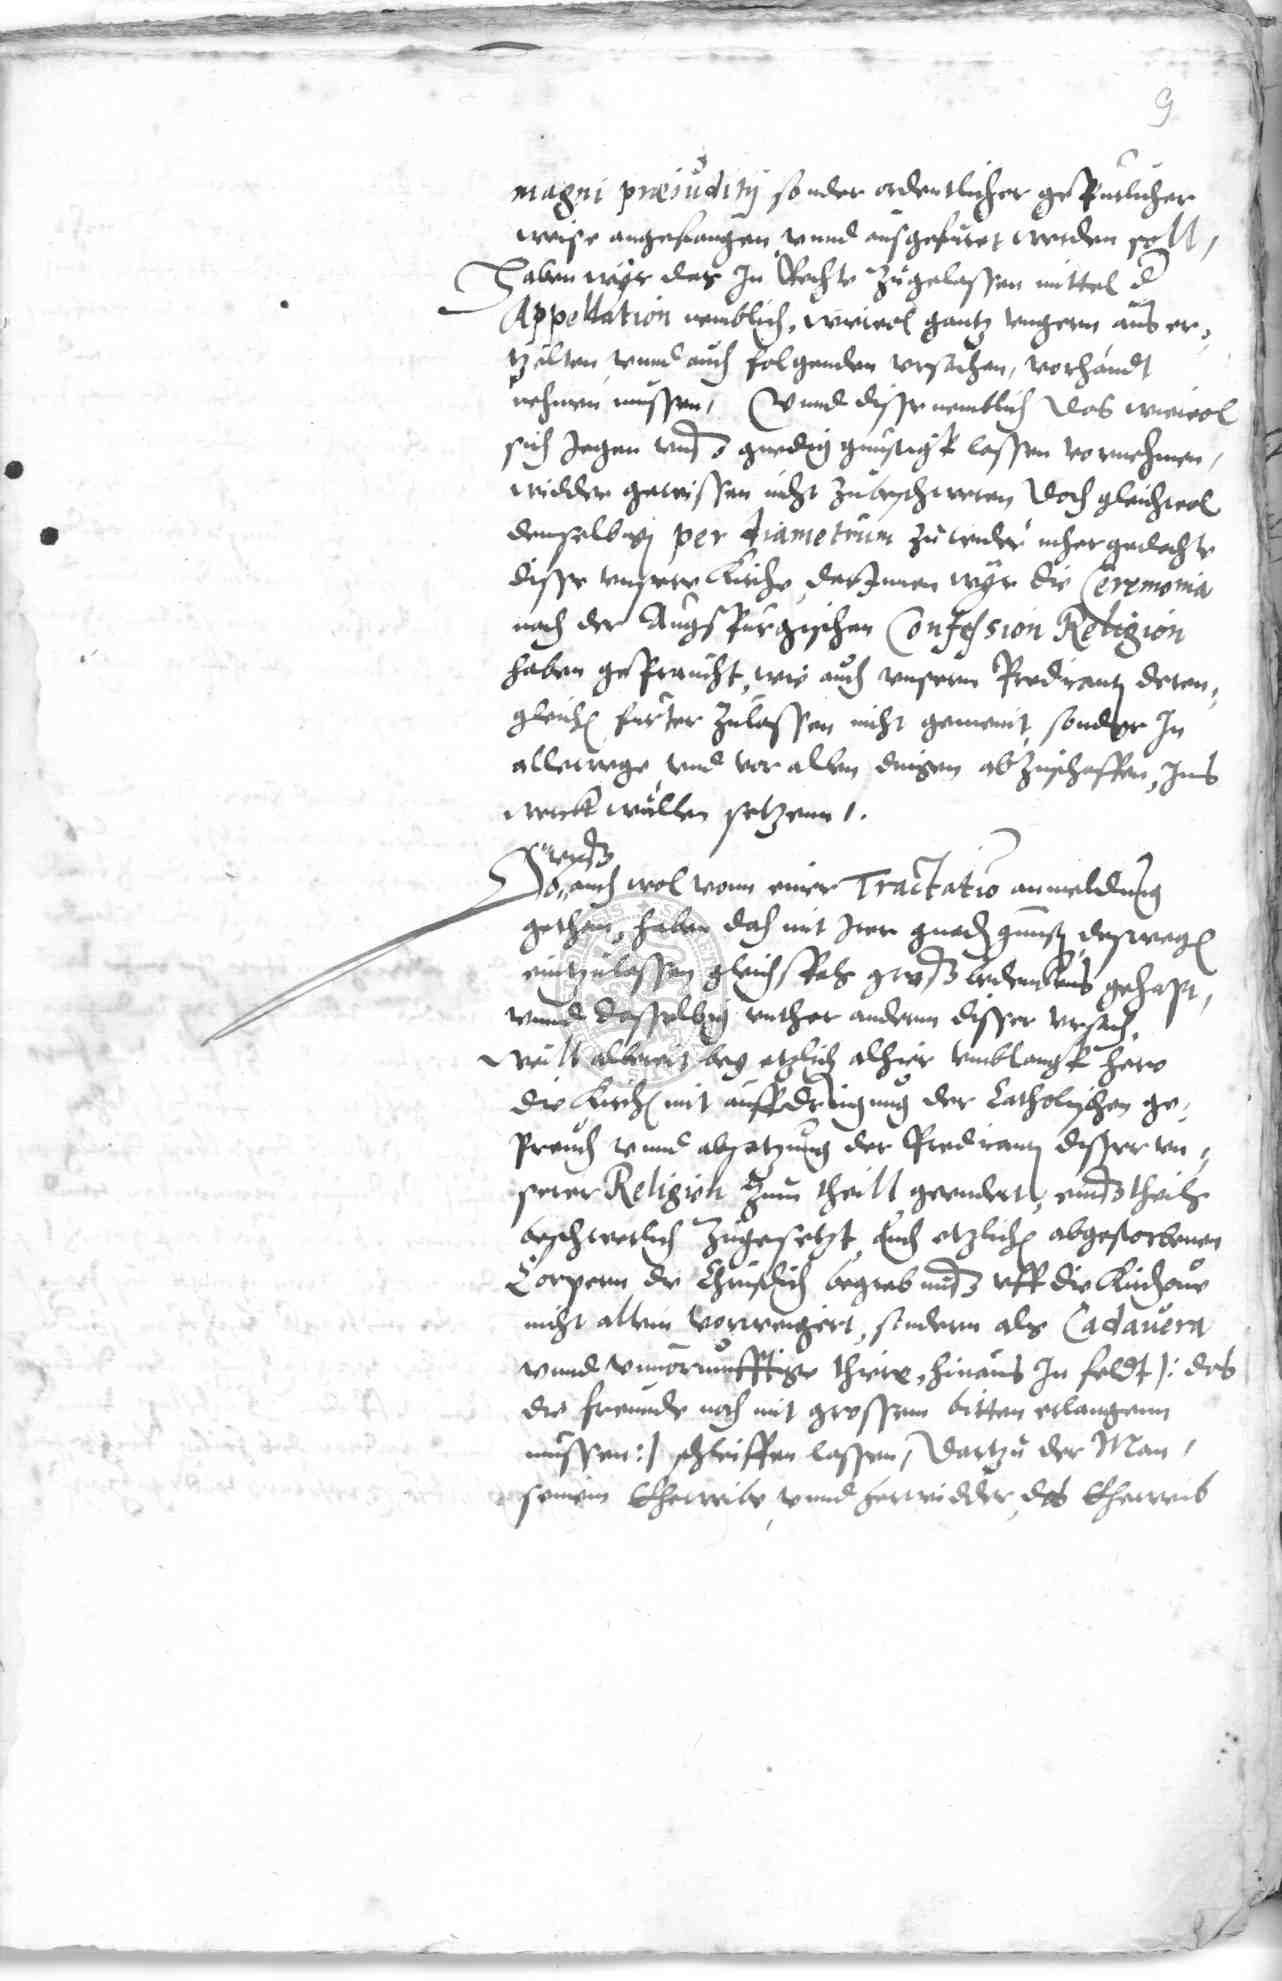 9
magni præiuditij sonder ordentlicher gepürlicher
weise angefangen vnnd ausgefüret werden soll,
Haben wÿr das In Rechte Zugelassen mittel d
Appellation nemblich, wiewol gantz vngern aus er,
tzelten vnnd auch folgenden vrsachen, vorhandt
nehmen müssen, Vnnd disse nemblich Das wiewol
sich Jegen vnß gnedig günstigk lassen vornehmen,
widder gewissen nicht Zubeschweren Doch gleichwol
demselbigen per diametrum Zuwider
disse vnsere Kirche, darInnen wÿr die Ceremonia
nach der Augspurgischen Confession Religion
haben gepraucht, wie auch vnsern Predicanten deren,
gleichen furter Zulassen nicht gemeint, sonder In
allewege vnd vor allen dingen abZuschaffen, Ins
werck wüllen setzenn,.
vnß
Ob, auch wol vonn einer Tractatio anmeldung
gethan, haben doch mit Irer gnad gunst deswegen
eintzulassen gleichsfals groß bedenckens gehapt,
vnnd dasselbig anther andern disser vrsach,
Weill albereit beÿ etzlich alhier vmblangk here
die Kirchen mit auffdringung der Catholischen ge,
preuch vnnd absetzung der Predicanten disser vn,
serer Religion Zum theill geendert, eins theils
beschwerlich Zugesetzt, Auch etzlichen abgestorbenen
Corpern die Christlich begrebnuß vff die Kirchoue
nicht allein vorweigert, sondern als Cadauera
vnnd vnuornunfftige thiere, hinaus In feldt /: das
die freunde noch mit grossem bitten erlangenn
müssen :/ schleiffen lassen, Dartzu der Man,
seinem Eheweibe, vnnd herwidder, das Eheweib